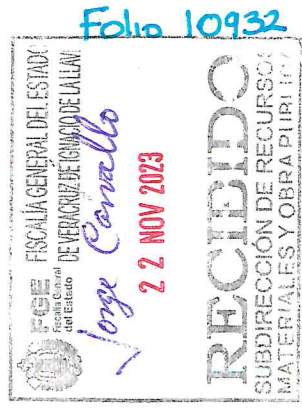 Folio 10932
FGE
Fiscalía General
del Estado
FISCALIA GENERAL DEL ESTADO
DE VERACRUZ DE IGNACIO DE LA LLAV
Jorge Carvallo
22 NOV 2023
RECIBIDO
SUBDIRECCIÓN DE RECURSOS
MATERIALES Y OBRA PÚBLICA